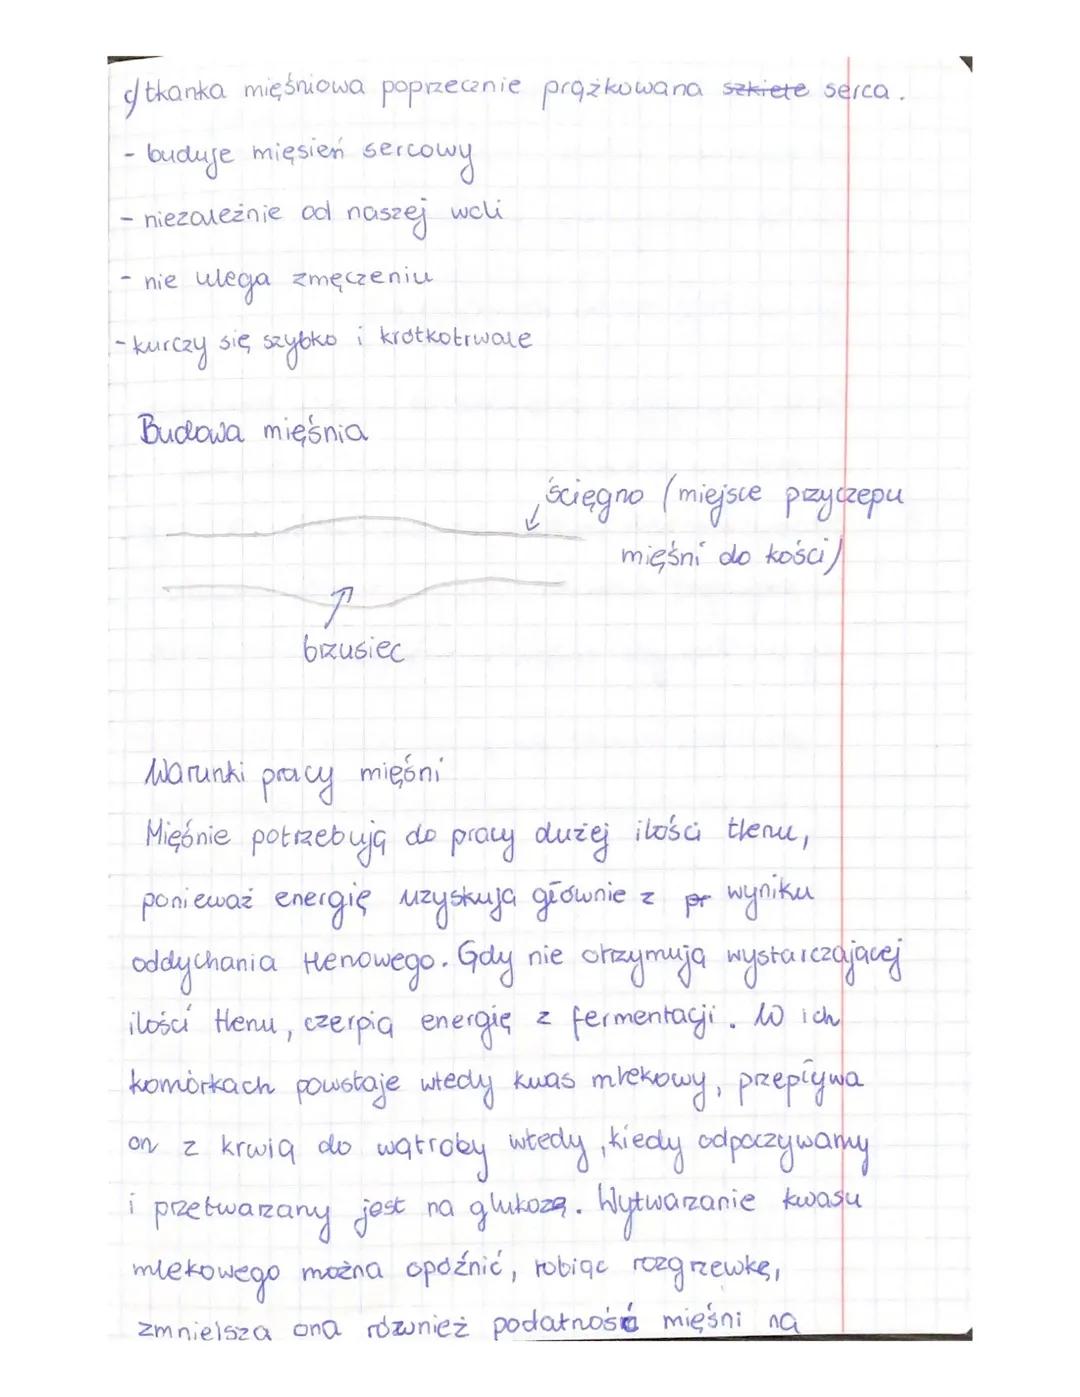 c) tkanka mięśniowa poprzecznie prążkowana szkiete serca.
- buduje mięsień sercowy
- niezależnie od naszej woli
- nie ulega zmęczeniu
- kurczy się szybko i krótkotrwale
Budowa mięśnia
ścięgno (miejsce przyczepu
mięśni do kości)
brzusiec
Warunki pracy mięśni
Mięśnie potrzebują do pracy dużej ilości tlenu,
ponieważ energię uzyskują głównie z pr wyniku
oddychania tlenowego. Gdy nie otrzymują wystarczającej
ilości tlenu, czerpią energię z fermentacji. W ich
komórkach powstaje wtedy kwas mlekowy, przepływa
on z krwią do wątroby wtedy, kiedy odpoczywamy
i przetwarzany jest na glukozę. Wytwarzanie kwasu
mlekowego można opóźnić, robiąc rozgrzewkę,
zmniejsza ona również podatność mięśni na